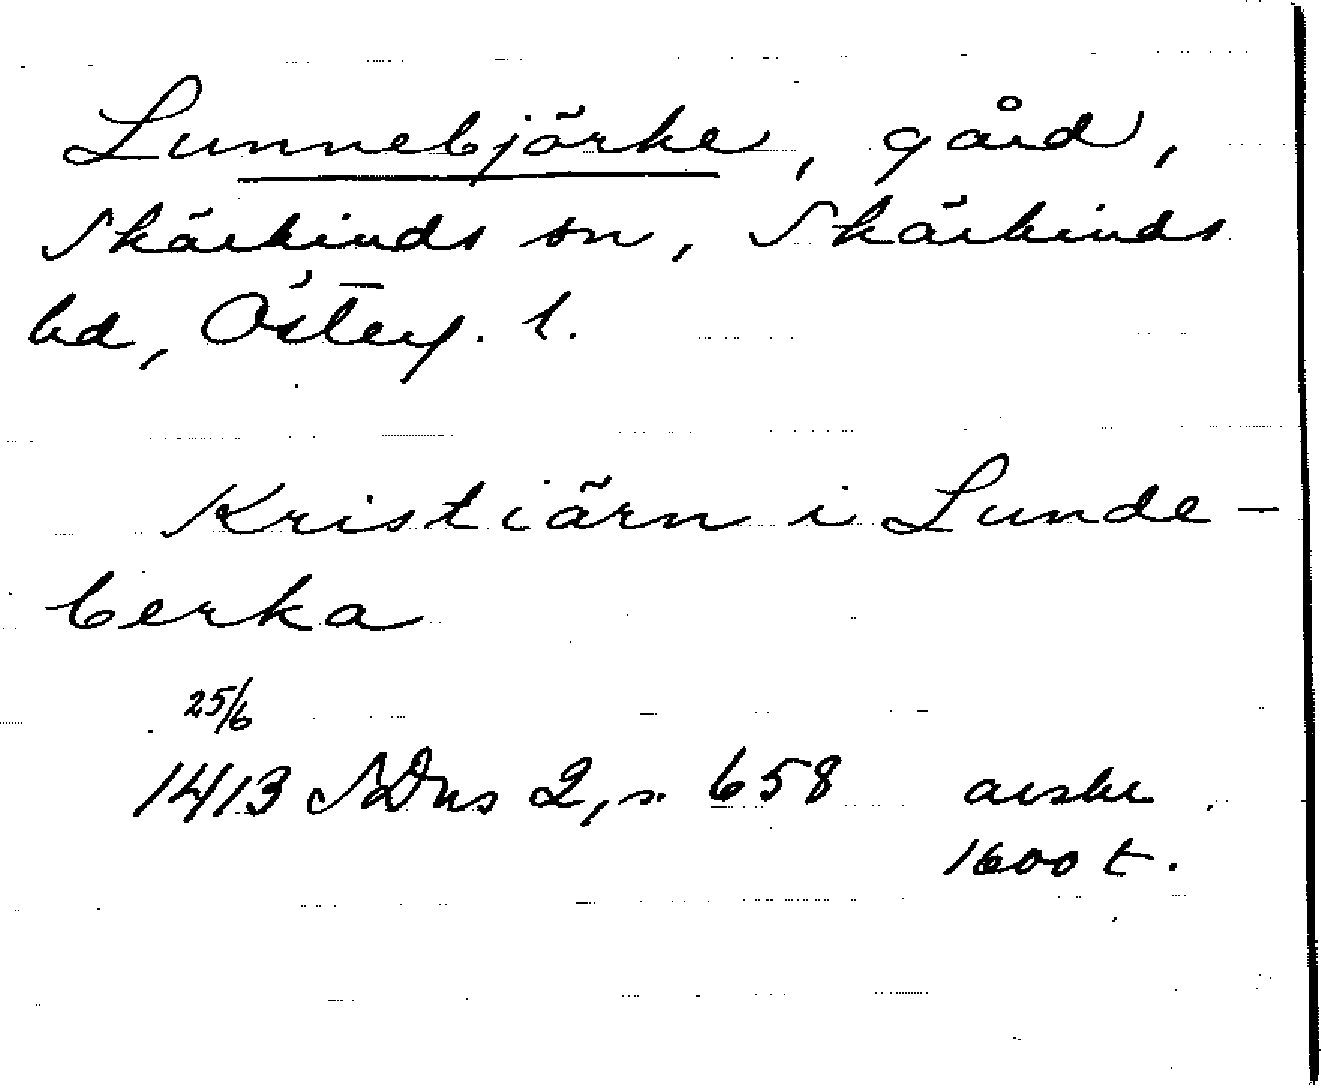 Lunnebjörke, gård,
Skärkinds sn, Skärkinds
hd, Österg. l.
Kristiärn i Lunde-
berka
25/6
1413 SDns 2, s. 658 avskr
1600 t.